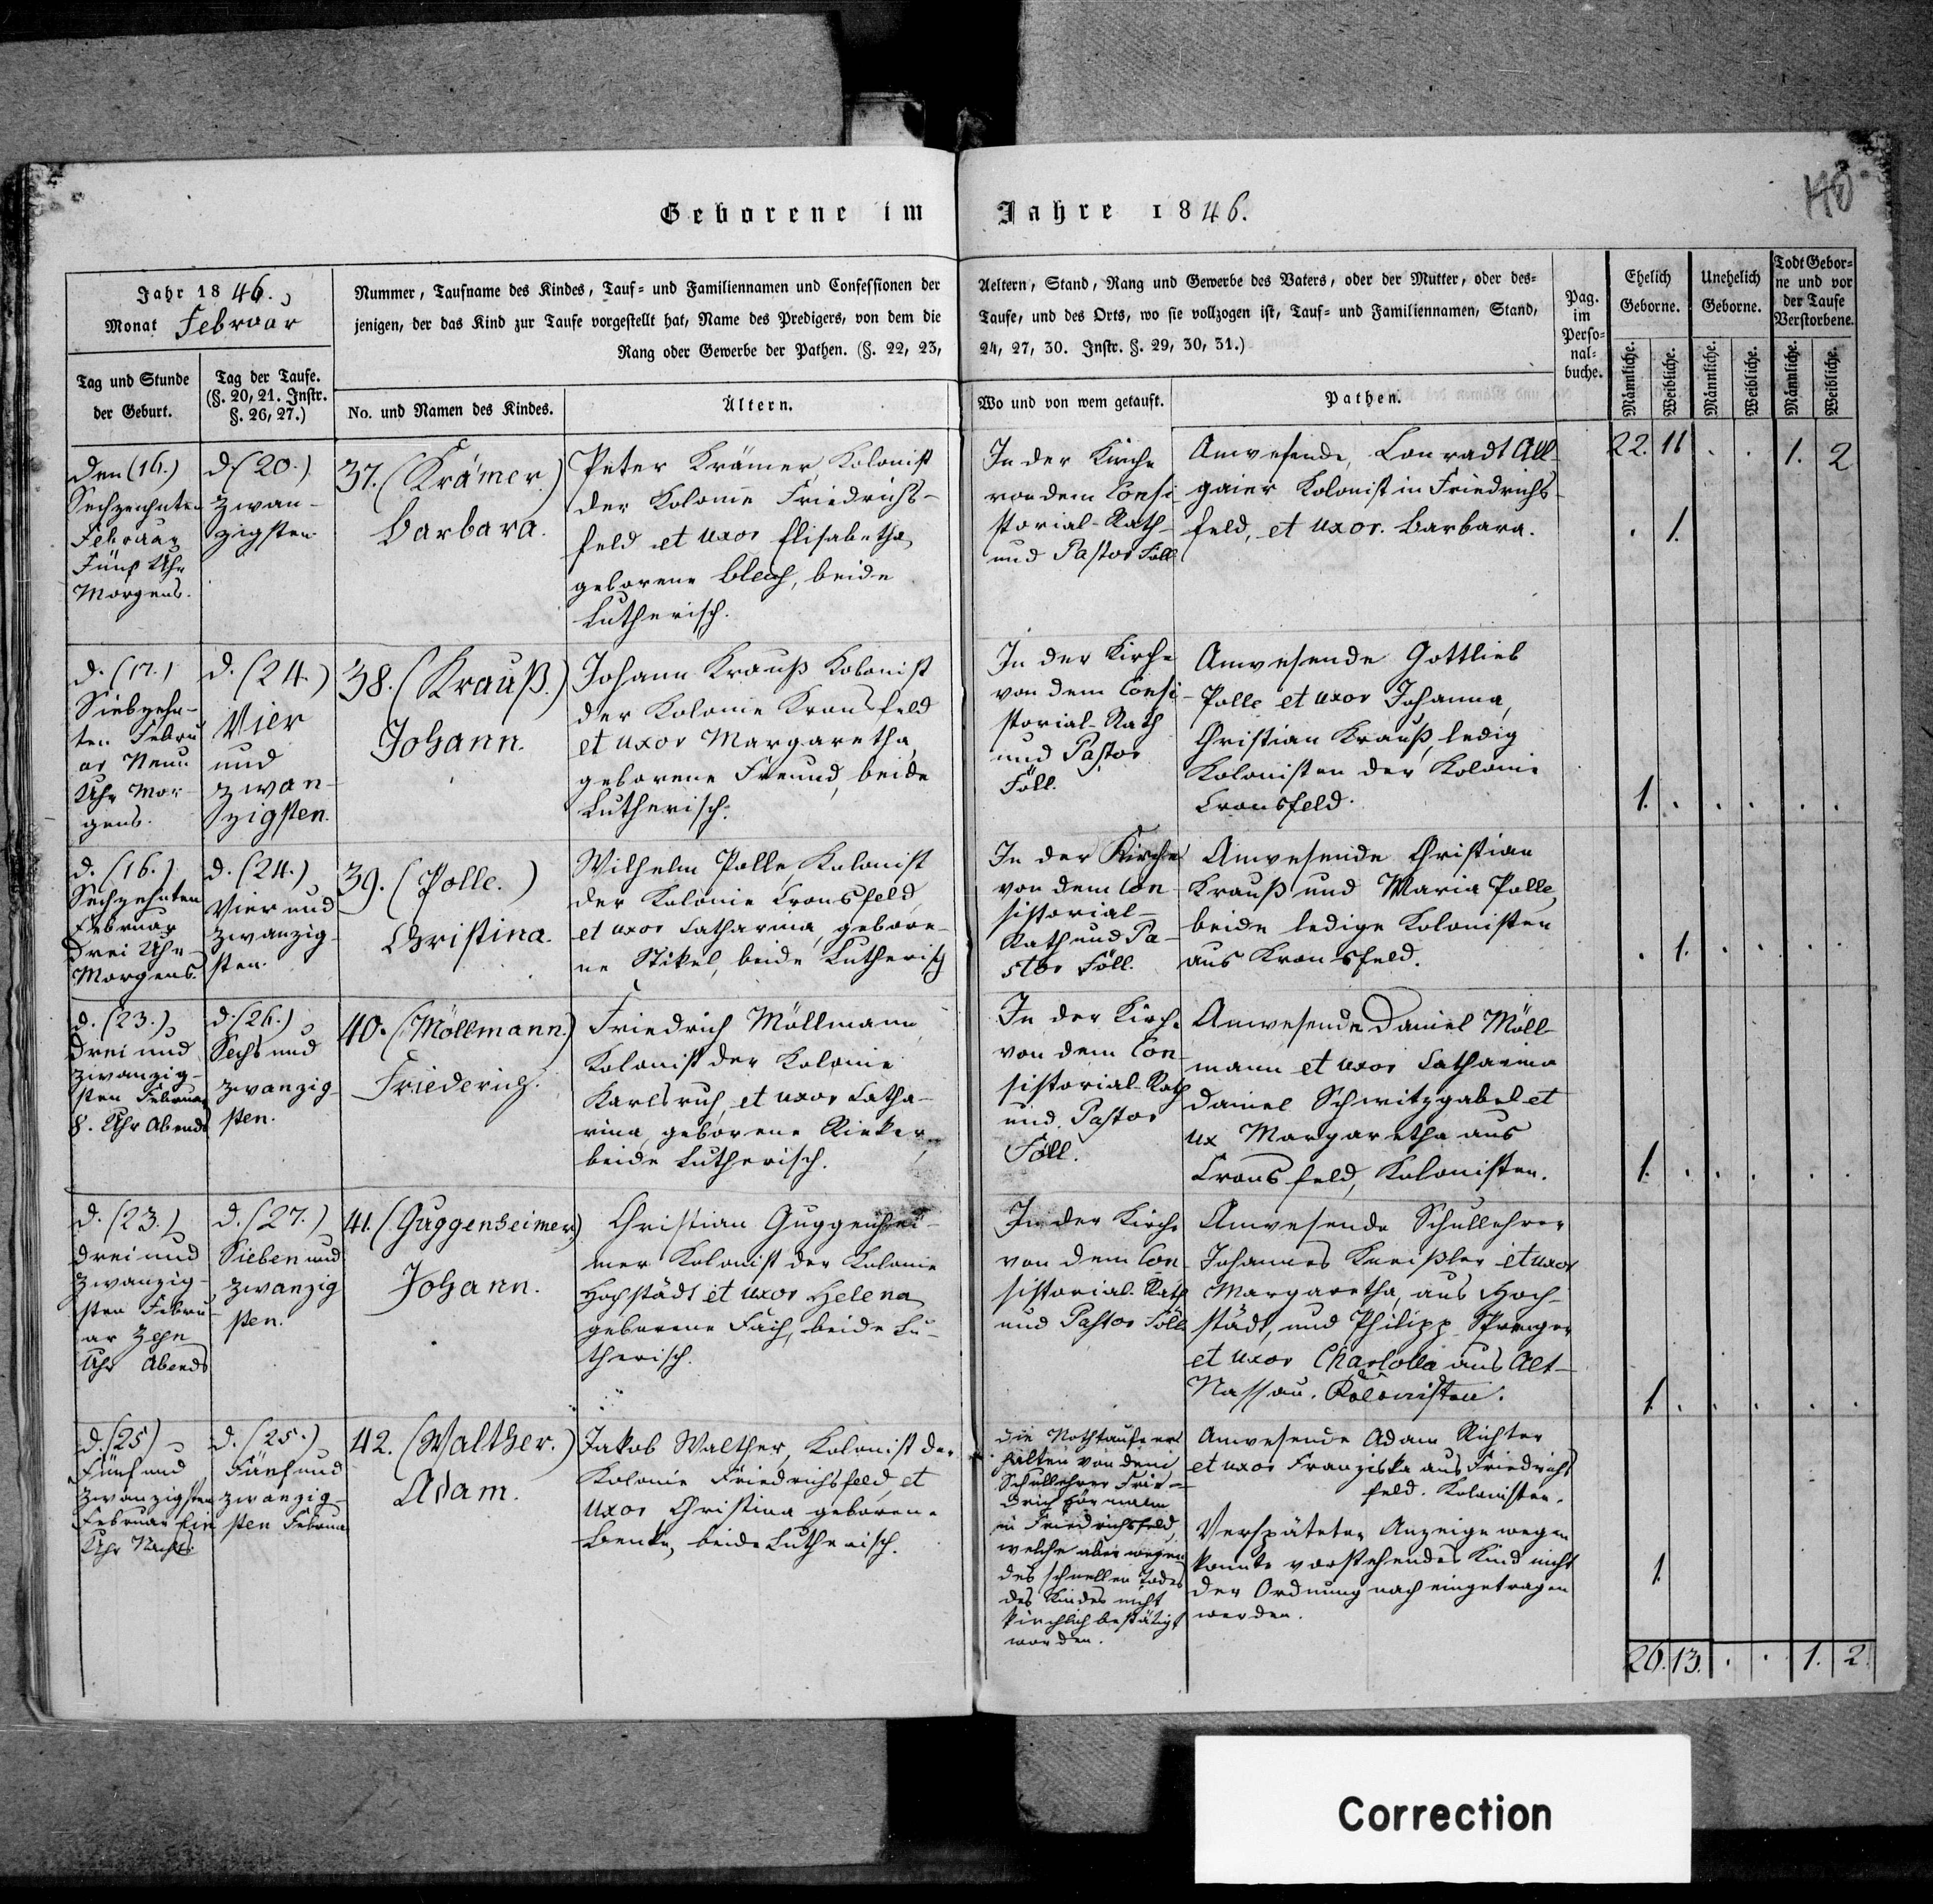 Geborene im Jahre 1846.
Jahr 1846.
Monat Februar
Nummer, Taufname des Kindes, Tauf= und Familiennamen und Confessionen der
jenigen, der das Kind zur Taufe vorgestellt hat, Name des Predigers, von dem die
Rang oder Gewerbe der Pathen. (§. 22, 23,
Aeltern, Stand, Rang und Gewerbe des Vaters, oder der Mutter, oder des=
Taufe, und des Orts, wo sie vollzogen ist, Tauf= und Familiennamen, Stand,
24, 27, 30. Instr. §. 29, 30, 31.)
Tag und Stunde
der Geburt.
Tag der Taufe.
(§. 20, 21. Instr.
§. 26, 27.)
No. und Namen des Kindes.
Ältern.
Wo und von wem getauft.
Pathen.
Pag.
im
Perso=
nal=
buche.
Ehelich
Geborne.
Unehelich
Geborne.
Todt Gebor=
ne und vor
der Taufe
Verstorbene.
Männliche.
Weibliche.
Männliche.
Weibliche.
Männliche.
Weibliche.
22. 11 . . 1. 2
Den (16.)
Sechzehnten
Februar
Fünf Uhr
Morgens.
d. (20.)
Zwan-
zigsten.
37. (Krämer.)
Barbara.
Peter Krämer, Kolonist
der Kolonie Friedrichs-
feld et uxor Elisabetha,
geborene Blech, beide
Lutherisch.
In der Kirche
von dem Consi
storial-Rath
und Pastor Föll
Anwesende, Conradt All
gaier Kolonist in Friedrichs-
feld, et uxor. Barbara.
. 1.
d. (17.)
Siebzehn-
ten Febru
ar Neun
Uhr Mor-
gens.
d. (24.)
Vier
und
zwan-
zigsten.
38. (Krauß.)
Johann.
Johann Krauß Kolonist
der Kolonie Kronsfeld
et uxor Margaretha,
geborene Freund, beide
Lutherisch.
In der Kirche
von dem Consi-
storial-Rath
und Pastor
Föll.
Anwesende Gottlieb
Polle et uxor Johanna,
Christian Krauß, ledig
Kolonisten der Kolonie
Cronsfeld.
1. . . . . .
d. (16.)
Sechzehnten
Februar
Drei Uhr
Morgens.
d. (24.)
Vier und
zwanzig-
sten.
39. (Polle.)
Christina.
Wilhelm Polle, Kolonist
der Kolonie Cronsfeld,
et uxor Catharina, gebore-
ne Stikel, beide Lutherisch
In der Kirche
von dem Con-
sistorial-
Rath und Pa-
stor Föll.
Anwesende Christian
Krauß und Maria Polle,
beide ledige Kolonisten
aus Kronsfeld.
. 1. . . . .
d. (23.)
Drei und
zwanzig-
sten Februar
8. Uhr Abends
d. (26.)
Sechs und
zwanzig
sten.
40. (Möllmann.)
Friederich.
Friedrich Möllmann,
Kolonist der Kolonie
Karlsruh, et uxor Catha-
rina, geborene Rieker,
beide Lutherisch.
In der Kirche
von dem Con-
sistorial-Rath
und Pastor
Föll.
Anwesende Daniel Möll-
mann et uxor Catharina
Daniel Schwitzgabel et
ux Margaretha aus
Cronsfeld, Kolonisten.
1. . . . . .
d. (23.)
Drei und
zwanzig-
sten Febru-
ar Zehn
Uhr Abends
d. (27.)
Sieben und
zwanzig
sten.
41. (Guggenheimer)
Johann.
Christian Guggenhei-
mer Kolonist der Kolonie
Hochstädt et uxor Helena
geborene Faih, beide Lu-
therisch.
In der Kirche
von dem Con-
sistorial-Rath
und Pastor Föll
Anwesende Schullehrer
Johannes Kneißler et uxor
Margaretha, aus Hoch-
städt, und Philipp Sprenger
et uxor Charlotta aus Alt-
Nassau. Kolonisten.
1. . . . . .
d. (25)
Fünf und
zwanzigsten
Februar Ein
Uhr Nachts.
d. (25.)
Fünf und
zwanzig-
sten Februar
42. (Walther.)
Adam.
Jakob Walther, Kolonist der
Kolonie Friedrichsfeld, et
uxor Christina geborene
Benke, beide Lutherisch.
Die Nothtaufe er
halten von dem
Schullehrer Frie-
drich Hörmann
in Friedrichsfeld,
welche aber wegen
des schnellen Todes
des Kindes nicht
kirchlich bestätigt
worden.
Anwesende Adam Richter
et uxor Franziska aus Friedrichs
feld. Kolonisten.
Verspäteter Anzeige wegen
konnte vorstehendes Kind nicht
der Ordnung nach eingetragen
werden.
1
26. 13. . . 1. 2.
Correction